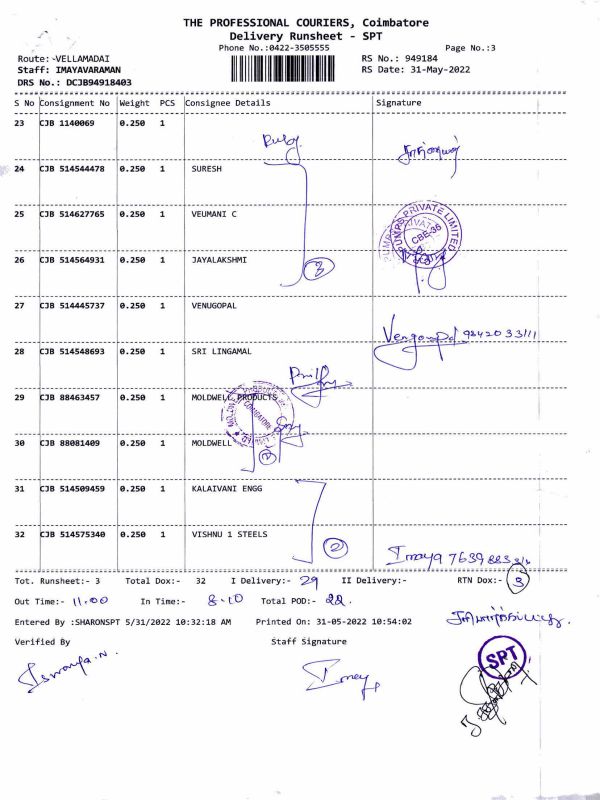 THE PROFESSIONAL COURIERS, Coimbatore
Delivery Runsheet - SPT
Phone No.:0422-3505555 Page No.:3
Route:-VELLAMADAI RS No.: 949184
Staff: IMAYAVARAMAN RS Date: 31-May-2022
DRS No.: DCJB94918403
S No Consignment No Weight PCS Consignee Details Signature
23 CJB 1140069 0.250 1
24 CJB 514544478 0.250 1 SURESH
25 CJB 514627765 0.250 1 VEUMANI C
PUMPS PRIVATE LIMITED
CBE-35
26 CJB 514564931 0.250 1 JAYALAKSHMI
3
27 CJB 514445737 0.250 1 VENUGOPAL
Venugopal 9842033111
28 CJB 514548693 0.250 1 SRI LINGAMAL
29 CJB 88463457 0.250 1 MOLDWELL PRODUCTS
COIMBATORE
30 CJB 88081409 0.250 1 MOLDWELL
2
31 CJB 514509459 0.250 1 KALAIVANI ENGG
32 CJB 514575340 0.250 1 VISHNU 1 STEELS
2
Imaya
Tot. Runsheet:- 3 Total Dox:- 32 I Delivery:- 29 II Delivery:- RTN Dox:- 3
Out Time:- 11.00 In Time:- 8.10 Total POD:- 22.
Entered By :SHARONSPT 5/31/2022 10:32:18 AM Printed On: 31-05-2022 10:54:02
Verified By Staff Signature
SPT
Imey